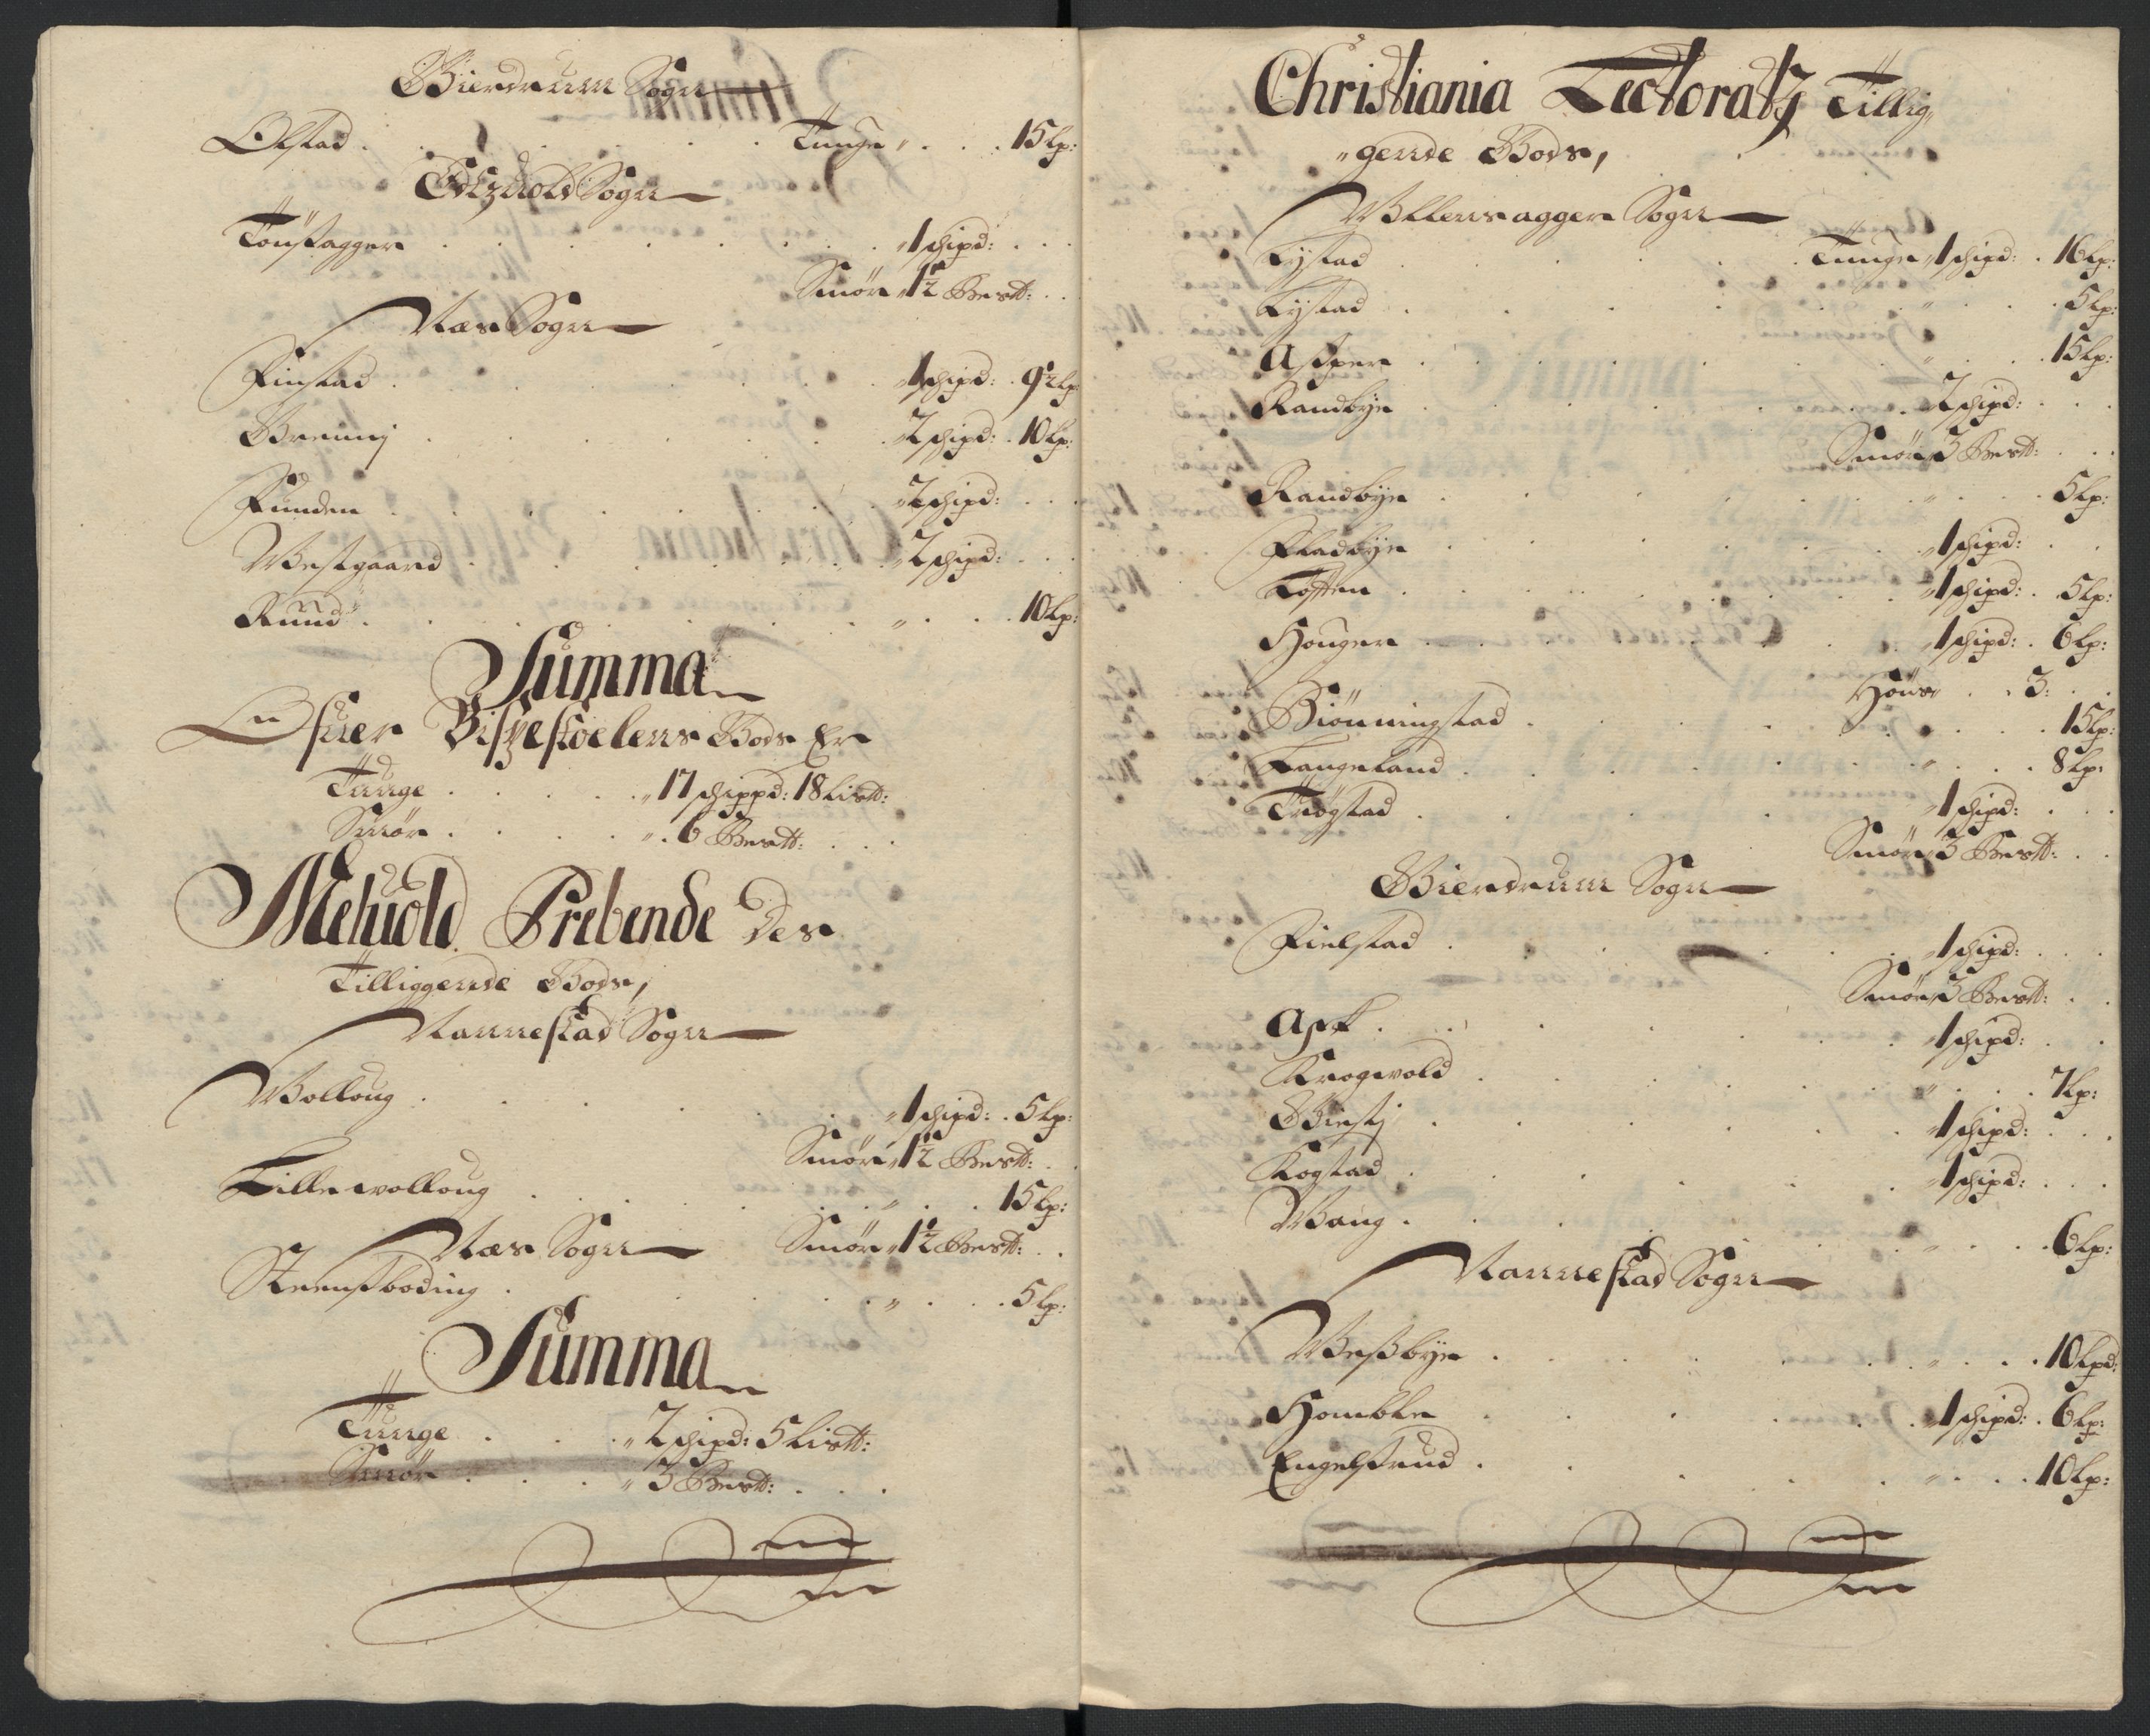 Bierdrum Sogn
Olstad . . . Tunge " . . . 15 Lp:
Edtzuold Sogn
Tønsagger . . . " 1 schipd: . . .
Smør " 1½ Bestt: . .
Næs Sogn
Finstad . . . " 1 schipd: . 9½ Lp
Brenni . . . " 2 schipd: . 10 Lp:
Funden . . . " 2 schipd: . . .
Westgaard . . . " 2 schipd: . . .
Ruud . . . " . . . 10 Lp:
Summa
Bispestoelens Bøds Er
Tunge . . . " 17 schippd: 18 Listt:
Smør . . . " . 6 Bestt: . . .
Mehuold Prebende Des
Tilliggende Bøds,
Nannestad Sogn
Wolloug . . . " 1 schipd: . 5 Lp:
Smør " 1½ Bestt: .
Lille wolloug . . . " . . . 15 Lp:
Næs Sogn Smør " 1½ Bestt: . .
Steensboding . . . " . . . 5 Lp:
Summa
Tunge . . . " 2 schipd: 5 Listt:
Smør . . . " 3 Bestt: . . .
Christiania Lectoratz Tillig„
„gende Bøds,
Ullensagger Sogn
Lystad . . . Tunge " 1 schipd: . 16 Lp:
Lystad . . . " . . . 5 Lp:
Asper . . . " . . . 15 Lp:
Randbye . . . 2 schipd: . . .
Smør " 3 Bestt: . . .
Randbye . . . " . . . 5 Lp:
Fladbye . . . " 1 schipd: . .
Toften . . . " 1 schipd: . 5 Lp:
Houger . . . " 1 schipd: . 6 Lp:
Høns " . . 3: . .
Biønningstad . . . 15 Lp:
Langeland . . . " . . . 8 Lp:
Trøgstad . . . " 1 schipd: . . .
Smør " 3 Bestt: . .
Bierdrum Sogn
Fielstad . . . " 1 schipd: . . .
Smør " 3 Bestt: . .
Ask . . . " 1 schipd: . .
Krogvold . . . " . . . 7 Lp:
Biesti . . . " 1 schipd: . . .
Kogstad . . . " 1 schipd: . . .
Wang . . . " . . . 6 Lp:
Nannestad Sogn
Weßbye . . . " . . . 10 Lpd:
Homble . . . " 1 schipd: . 6 Lp:
Engelsrud . . . " . . . 10 Lp: